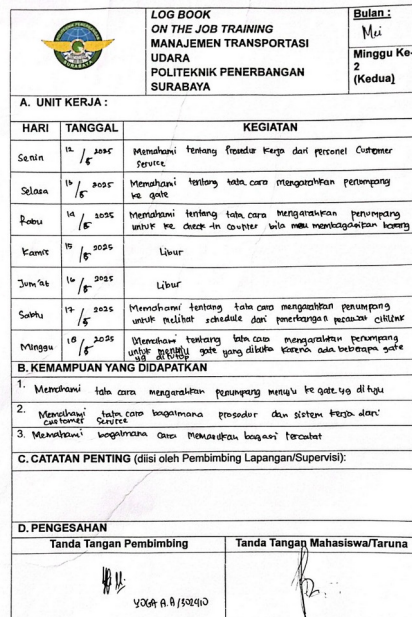 LOG BOOK
ON THE JOB TRAINING
MANAJEMEN TRANSPORTASI
UDARA
POLITEKNIK PENERBANGAN
SURABAYA
Bulan :
Mei
Minggu Ke-
2
(Kedua)
SURABAYA
A. UNIT KERJA :
HARI TANGGAL KEGIATAN
Senin 12/5 2025 Memahami tentang Prosedur Kerja dari personel Customer
Service
Selasa 13/5 2025 Memahami tentang tata cara mengarahkan penumpang
ke gate
Rabu 14/5 2025 Memahami tentang tata cara mengarahkan penumpang
untuk ke check-in counter bila mau membagasikan barang
Kamis 15/5 2025 Libur
Jum'at 16/5 2025 Libur
Sabtu 17/5 2025 Memahami tentang tata cara mengarahkan penumpang
untuk melihat schedule dari penerbangan pesawat citilink
Minggu 18/5 2025 Memahami tentang tata cara mengarahkan penumpang
untuk menuju gate yang dibuka karena ada beberapa gate
yg di tutup
B. KEMAMPUAN YANG DIDAPATKAN
1. Memahami tata cara mengarahkan penumpang menuju ke gate yg di tuju
2. Memahami tata cara bagaimana prosedur dan sistem kerja dari
customer service
3. Memahami bagaimana cara memasukan bagasi tercatat
C. CATATAN PENTING (diisi oleh Pembimbing Lapangan/Supervisi):
D. PENGESAHAN
Tanda Tangan Pembimbing Tanda Tangan Mahasiswa/Taruna
YOGA A.A/302910